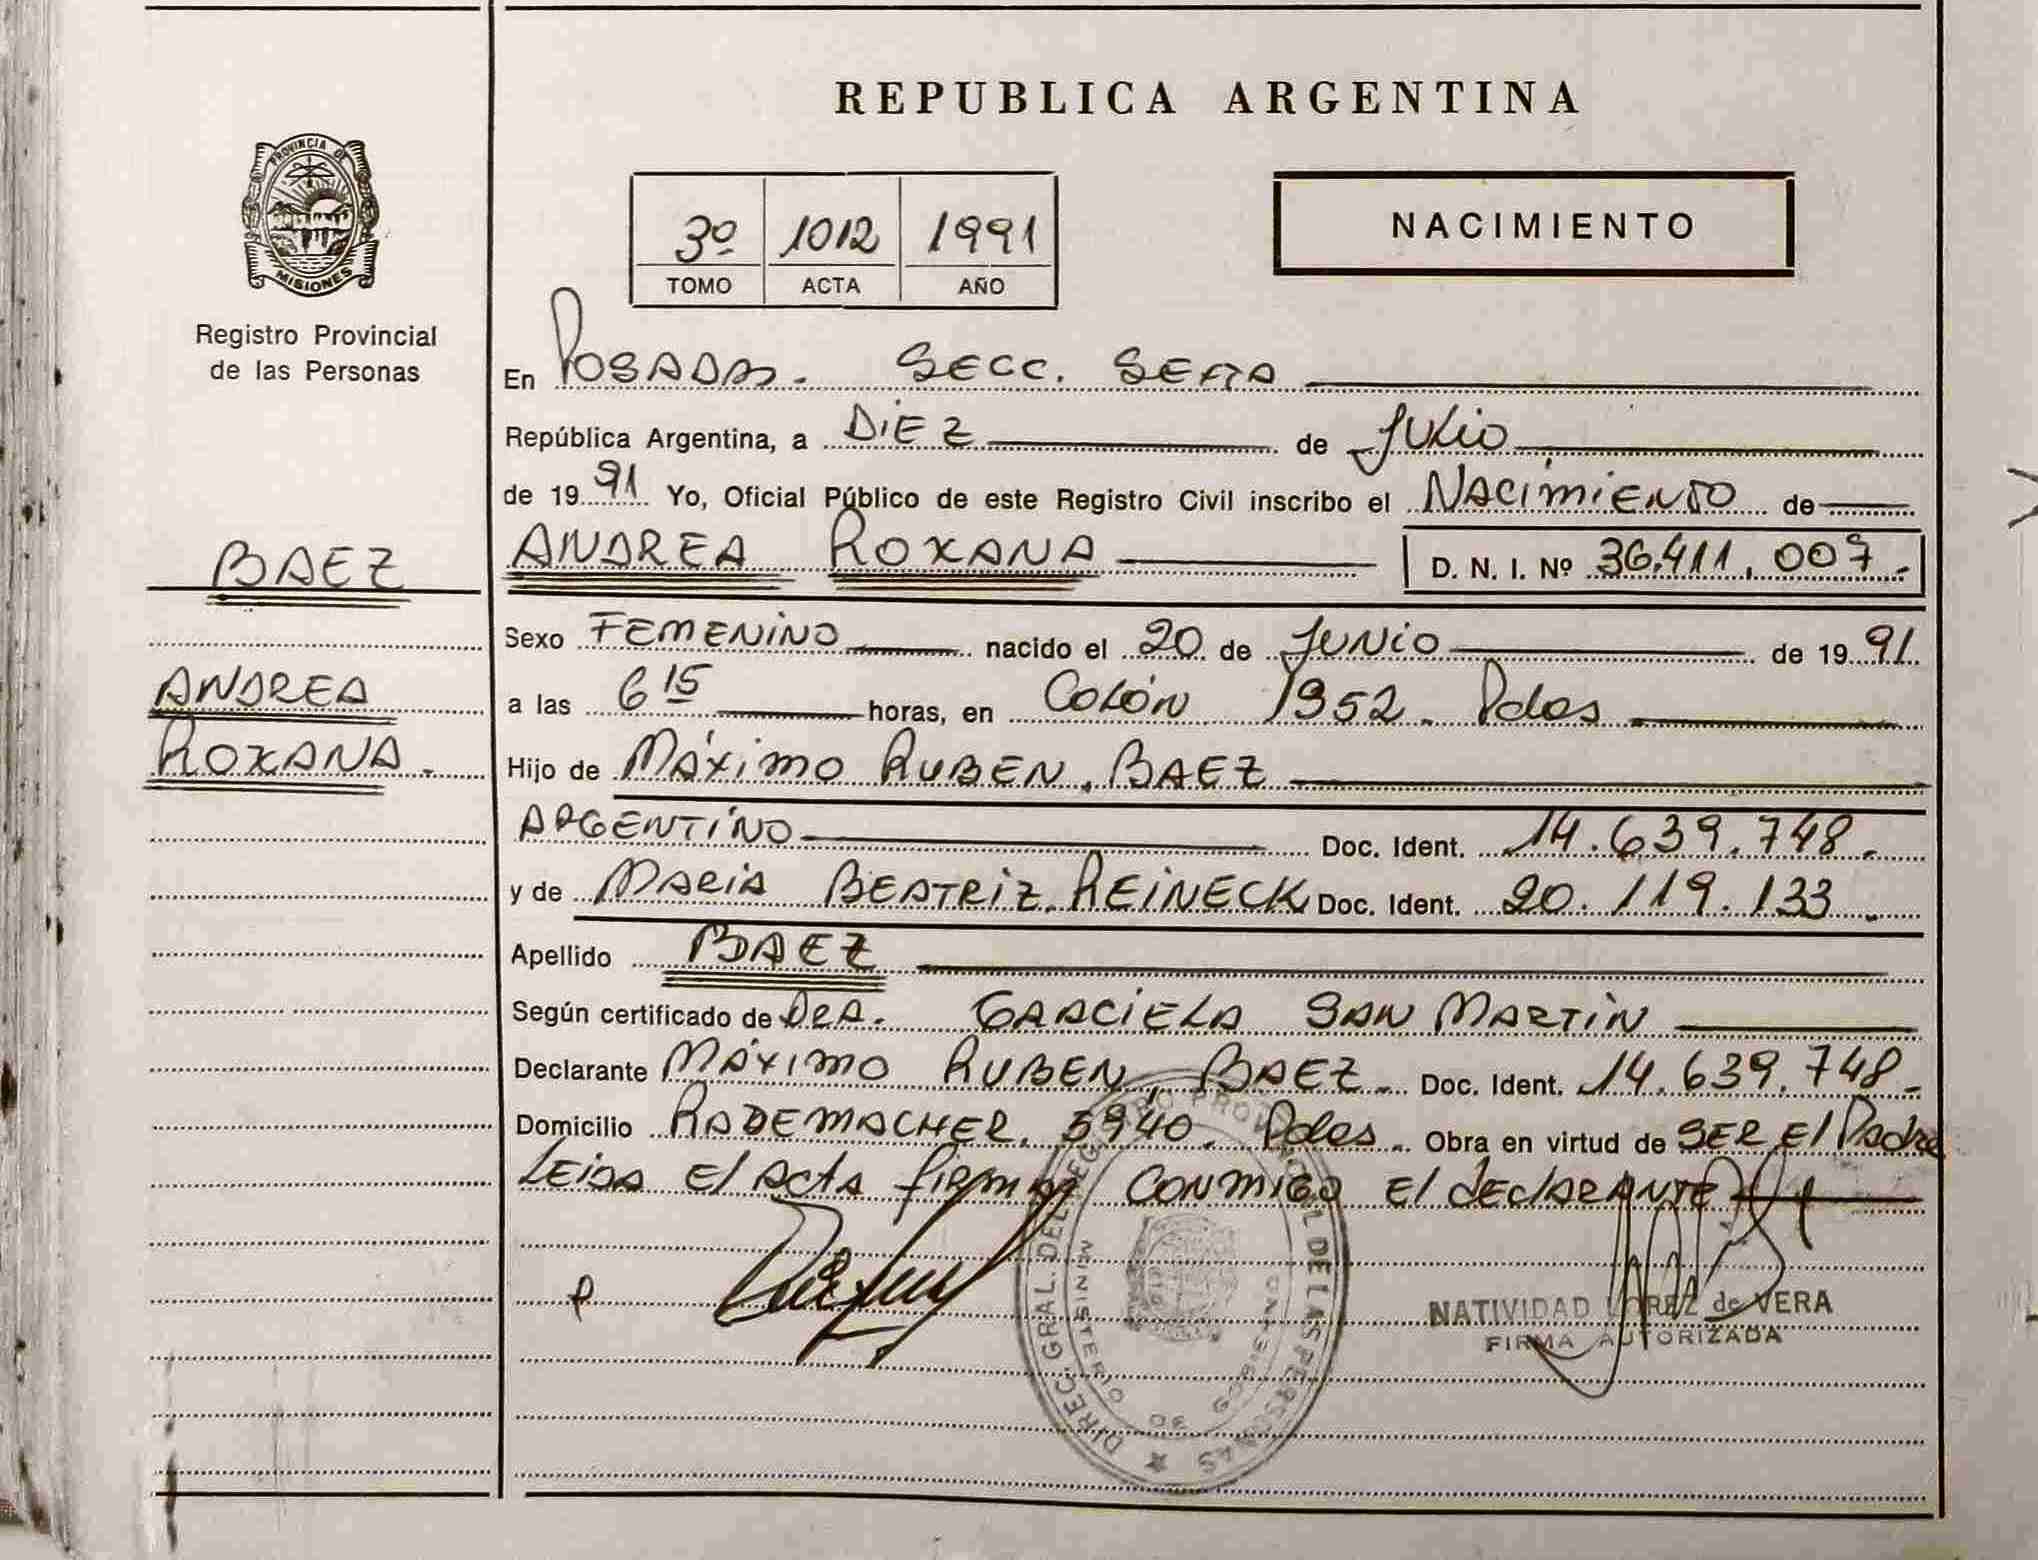 REPUBLICA ARGENTINA
PROVINCIA DE
MISIONES
Registro Provincial
de las Personas
3º 1012 1991
TOMO ACTA AÑO
NACIMIENTO
En POSADAS. SECC. SEXTA
República Argentina, a DIEZ de JULIO
de 1991 Yo, Oficial Público de este Registro Civil inscribo el NACIMIENTO de
BAEZ
ANDREA ROXANA D. N. I. Nº 36.411.007.
Sexo FEMENINO nacido el 20 de JUNIO de 1991.
ANDREA
ROXANA.
a las 6 15 horas, en COLÓN 1952. Pdas.
Hijo de MÁXIMO RUBEN, BAEZ
ARGENTINO Doc. Ident. 14.639.748.
y de MARIA BEATRIZ. REINECK Doc. Ident. 20.119.133.
Apellido BAEZ
Según certificado de DRA. GRACIELA SAN MARTIN
Declarante MÁXIMO RUBEN, BAEZ. Doc. Ident. 14.639.748.
Domicilio RADEMACHER. 5940. Pdas. Obra en virtud de SER El Padre
LEIDA El ACTA FIRMA CONMIGO El dEClARANTE
P
NATIVIDAD LOPEZ de VERA
FIRMA AUTORIZADA
DIREC. GRAL. DEL REGISTRO PROVINCIAL DE LAS PERSONAS
MINISTERIO DE GOBIERNO